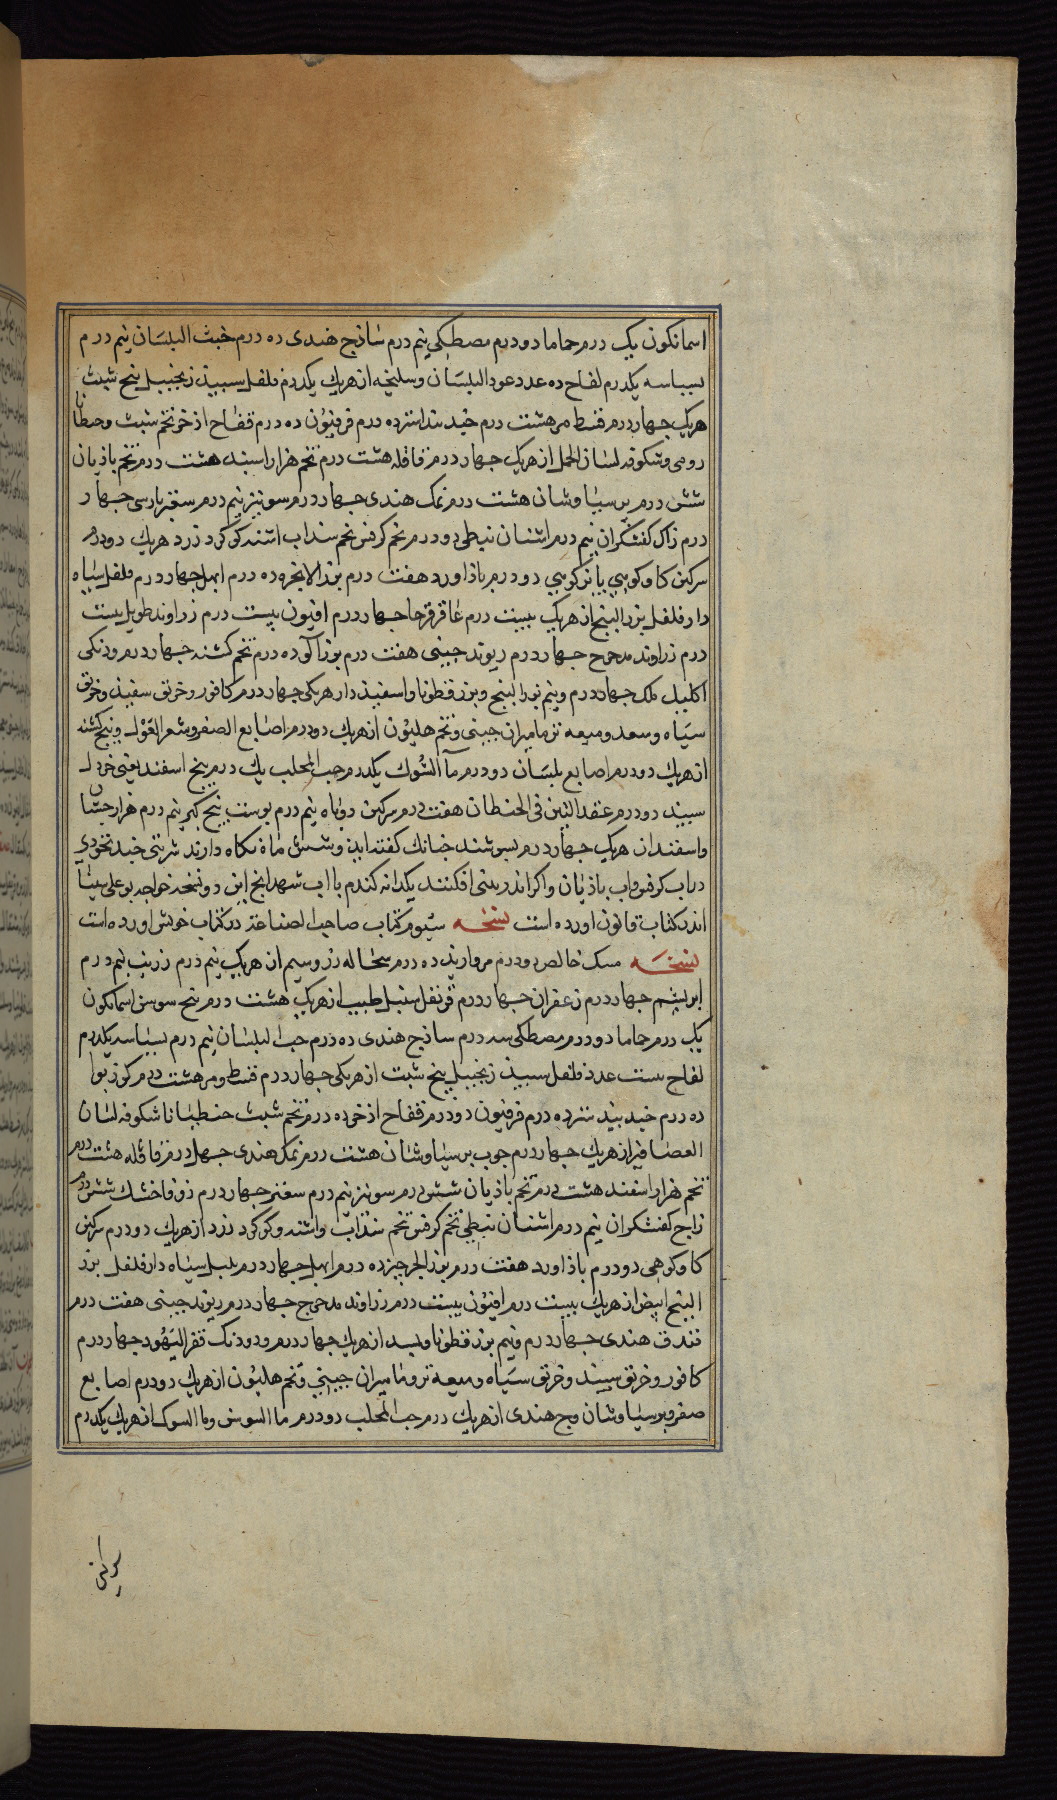 اسمانکون یک درم حماما دو درم مصطکی نیم درم ساذج هندی ده درم خبث البلسان نیم درم
بسباسه یکدرم لفاح ده عدد عود البلسان و سلیخه از هریک یکدرم فلفل سبیذ زنجبیل بیخ شبث
هریک جهار درم قسط مر هشت درم جند بیدستر ده درم فرفیون ده درم فقاح اذخر تخم شبث و جنطیان
رومی و شکوفه لسان الحمل از هریک جهار درم قاقله هشت درم تخم هزار اسبند هشت درم تخم باذیان
شش درم برسیاوشان هشت درم نمک هندی جهار درم سونیز نیم درم سعتر بارسی جهار
درم زاک کفشکران نیم درم اشنان نبطی دو درم تخم کرفس تخم سذاب اشنه کوکرد زرد هریک دو درم
سرکین کاو کوهی یا بز کوهی دو درم باذاورد هفت درم بزر الانجره ده درم ابهل جهار درم فلفل سیاه
دار فلفل بزر البنج از هریک بیست درم عاقرقرحا جهار درم افیون بیست درم زراوند طویل بیست
درم زراوند مدحرج جهار درم ریوند جینی هفت درم بوزاکوده درم تخم کشنه جهار درم و دنکی
اکلیل ملک جهار درم و نیم بزر البنج و بزر قطونا و اسفیذدار هریکی جهار درم کافور و خربق سفیذ و خربق
سیاه و سعد و میعه تر مامیران جینی و تخم هلیون از هریک دو درم اصابع الصفر و شعر الغول و بیخ کشنه
از هریک دو درم اصابع بلسان دو درم ماء الشوک یکدرم حب المحلب یک درم بیخ اسفند یعنی خردل
سبیند دو درم عنقد التین فی الحنطان هفت درم سرکین روباه نیم درم بوست بیخ کبر نیم درم هزار جشان
و اسفندان هریک جهار درم بسرشند جنانک کفته اید و شش ماه نکاه دارند شربتی جند نخودی
در اب کرفس و اب باذیان و اکر اندر بینی افکنند یکدانه کندم با اب شهدانج این دو نسخه خواجه بو علی سینا
اندر کتاب قانون اورده است نسخه سیوم کتاب صاحب الصناعة در کتاب خویش اورده است
نسخه مسک خالص دو درم مروارید ده درم سحاله زر و سیم از هریک نیم درم زرنب نیم درم
ابریشم جهار درم زعفران جهار درم قرنفل سنبل طیب از هریک هشت درم بیخ سوسن اسمانکون
یک درم حاما دو درم مصطکی سه درم ساذج هندی ده درم حب البلسان نیم درم بسباسه یکدرم
لفاح ست عدد فلفل سبیذ زنجبیل بیخ شبت از هریکی جهار درم قسط و مر هشت درم کوزبوا
ده درم جند بیدستر ده درم فرفیون دو درم فقاح اذخر ده درم تخم شبث جنطیانا شکوفه لسان
العصافیر از هریک جهار درم جوب برسیاوشان هشت درم نمک هندی جهل درم قاقله هشت درم
تخم هزار اسفند هشت درم تخم باذیان شش درم سونیز نیم درم سعتر جهار درم زوفا خشک شش درم
زاج کفشکران نیم درم اشنان نبطی تخم کرفس تخم سذاب و اشنه و کوکرد زرد از هریک دو درم سرکین
کاو کوهی دو درم باذاورد هفت درم بزر الجرجیر ده درم ابهل جهار درم بلبل سیاه دار فلفل بزر
البنج ابیض از هریک بیست درم افیون بیست درم زراوند مدحرج جهار درم ریوند جینی هفت درم
فندق هندی جهار درم و نیم بزر قطونا و بسد از هریک جهار درم و دو دنک قفر الیهود جهار درم
کافور و خربق سبیند و خربق سیاه و میعه تر و مامیران جینی و تخم هلیون از هریک دو درم اصابع
صفر و برسیاوشان وج هندی از هریک درم حب المحلب دو درم ما السوس و ما السوک از هریک یکدرم